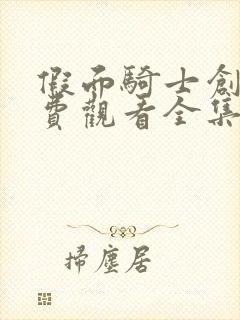 假而騎士創
費觀看全集
掃塵居